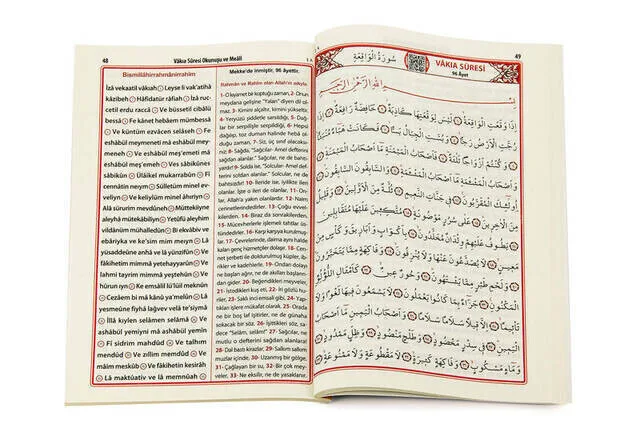 48
Vâkıa Sûresi Okunuşu ve Meâli
Bismillâhirrahmânirrahîm
İzâ vekaatil vâkıah Leyse li vak'atihâ
kâzibeh Hâfidatür râfiah İzâ ruc-
cetil erdu raccâ Ve büssetil cibâlü
bessâ Fe kânet hebâem mümbessâ
Ve küntüm ezvâcen selâseh Fe
eshâbül meymeneti mâ eshâbül mey-
meneh Ve eshâbül meş'emeti mâ
eshâbül meş'emeh Ves sâbikûnes
sâbikûn Ülâikel mukarrabûn Fî
cennâtin neıym Sülletüm minel ev-
velîyn Ve kelîylüm minel âhırîyn
Alâ sürurim mevdûneh Müttekiîyne
aleyhâ mütekâbilîyn Yetûfü aleyhim
vildânüm muhalledûn Bi ekvâbiv ve
ebâriyka ve ke'sim mim meıyn Lâ
yüsaddeûne anhâ ve lâ yünzifûn Ve
fâkihetim mimmâ yetehayyerûn Ve
lahmi tayrim mimmâ yeştehûn Ve
hûrun ıyn Ke emsâlil lü'lüil meknûn
Cezâem bi mâ kânû ya'melûn Lâ
yesmeûne fîyhâ lağvev velâ te'sîymâ
İllâ kıylen selâmen selâmâ Ve
ashâbül yemîyni mâ ashâbül yemîn
Fî sidrim mahdûd Ve talhım
mendûd Ve zıllim memdûd Ve
mâim meskûb Ve fâkihetin kesîrah
Lâ maktûativ ve lâ memnûah
Mekke'de inmiştir, 96 âyettir.
Rahmân ve Rahîm olan Allah'ın adıyla
1- O kıyamet koptuğu zaman, 2- Onun
meydana gelişine "Yalan" diyen dil ol-
maz. 3- Kimini alçaltır, kimini yükseltir.
4- Yeryüzü şiddetle sarsıldığı, 5- Dağ-
lar bir serpilişle serpildiği, 6- Hepsi
dağılıp, toz duman halinde hebâ ol-
duğu zaman. 7- Siz, üç sınıf olacaksı-
nız: 8- Sağda, "Sağcılar- Amel defterini
sağdan alanlar", Sağcılar, ne de bahti-
yardır! 9- Solda ise, "Solcular- Amel def-
terini soldan alanlar." Solcular, ne de
bahtsızdır! 10- İleride ise, iyilikte ileri
olanlar. İşte o ileri de olanlar. 11- On-
lar, Allah'a yakın olanlardır. 12- Naîm
cennetlerindedirler. 13- Çoğu evvel-
kilerden, 14- Biraz da sonrakilerden.
15- Mücevherlerle işlemeli tahtlar üs-
tündedirler. 16- Karşı karşıya kurulmuş-
lar. 17- Çevrelerinde, daima aynı halde
kalan genç hizmetçiler dolaşır. 18- Cen-
net şerbeti ile doldurulmuş küpler, ib-
rikler ve kadehlerle. 19- Ondan dolayı
ne başları ağrır, ne de akılları başların-
dan gider. 20- Beğendikleri meyveler,
21- İstedikleri kuş eti, 22- İri gözlü hu-
riler, 23- Saklı inci emsali gibi, 24- Yap-
tıkları işlere mükafat olarak. 25- Orada
ne bir boş laf işitirler, ne de günaha
sokacak bir söz. 26- İşittikleri söz, sa-
dece "Selâm, selâm!" 27- Sağcılar, ne
mutlu o defterini sağdan alanlara!
28- Dal bastı kirazlar, 29- Salkım salkım
muzlar içinde, 30- Uzanmış bir gölge,
31- Çağlayan bir su, 32- Bir çok mey-
veler, 33- Ne eksilir, ne de yasaklanır.
49
سُورَةُ الْوَاقِعَةِ
VÂKIA SÛRESİ
96 Âyet
بِسْمِ اللّٰهِ الرَّحْمٰنِ الرَّحِيمِ
اِذَا وَقَعَتِ الْوَاقِعَةُ لَيْسَ لِوَقْعَتِهَا كَاذِبَةٌ خَافِضَةٌ رَافِعَةٌ اِذَا
رُجَّتِ الْاَرْضُ رَجًّا وَبُسَّتِ الْجِبَالُ بَسًّا فَكَانَتْ هَبَٓاءً مُنْبَثًّا
وَكُنْتُمْ اَزْوَاجًا ثَلٰثَةً فَاَصْحَابُ الْمَيْمَنَةِ مَٓا اَصْحَابُ الْمَيْمَنَةِ
وَاَصْحَابُ الْمَشْـَٔمَةِ مَٓا اَصْحَابُ الْمَشْـَٔمَةِ وَالسَّابِقُونَ السَّابِقُونَ
اُولٰٓئِكَ الْمُقَرَّبُونَ فِي جَنَّاتِ النَّعِيمِ ثُلَّةٌ مِنَ الْاَوَّلِينَ وَقَلِيلٌ
مِنَ الْاٰخِرِينَ عَلٰى سُرُرٍ مَوْضُونَةٍ مُتَّكِـِٔينَ عَلَيْهَا مُتَقَابِلِينَ
يَطُوفُ عَلَيْهِمْ وِلْدَانٌ مُخَلَّدُونَ بِاَكْوَابٍ وَاَبَارِيقَ وَكَأْسٍ مِنْ
مَعِينٍ لَا يُصَدَّعُونَ عَنْهَا وَلَا يُنْزِفُونَ وَفَاكِهَةٍ مِمَّا يَتَخَيَّرُونَ
وَلَحْمِ طَيْرٍ مِمَّا يَشْتَهُونَ وَحُورٌ عِينٌ كَاَمْثَالِ اللُّؤْلُؤِ
الْمَكْنُونِ جَزَٓاءً بِمَا كَانُوا يَعْمَلُونَ لَا يَسْمَعُونَ فِيهَا لَغْوًا وَلَا
تَأْثِيمًا اِلَّا قِيلًا سَلَامًا سَلَامًا وَاَصْحَابُ الْيَمِينِ مَٓا اَصْحَابُ
الْيَمِينِ فِي سِدْرٍ مَخْضُودٍ وَطَلْحٍ مَنْضُودٍ وَظِلٍّ مَمْدُودٍ
وَمَٓاءٍ مَسْكُوبٍ وَفَاكِهَةٍ كَثِيرَةٍ لَا مَقْطُوعَةٍ وَلَا مَمْنُوعَةٍ